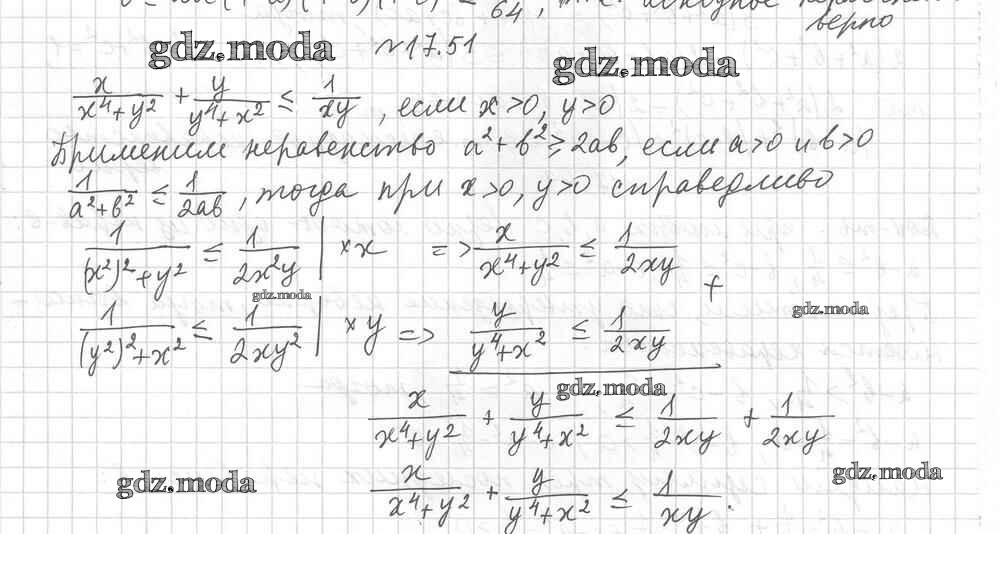 64, верно
gdz.moda
№17.51
gdz.moda
x/(x⁴+y²) + y/(y⁴+x²) ≤ 1/(xy), если x>0, y>0
Применим неравенство a²+b²≥2ab, если a>0 и b>0
1/(a²+b²) ≤ 1/(2ab), тогда при x>0, y>0 справедливо
1/((x²)²+y²) ≤ 1/(2x²y) | ×x => x/(x⁴+y²) ≤ 1/(2xy)
+
gdz.moda
gdz.moda
1/((y²)²+x²) ≤ 1/(2xy²) | ×y => y/(y⁴+x²) ≤ 1/(2xy)
gdz.moda
x/(x⁴+y²) + y/(y⁴+x²) ≤ 1/(2xy) + 1/(2xy)
gdz.moda
gdz.moda
x/(x⁴+y²) + y/(y⁴+x²) ≤ 1/(xy).